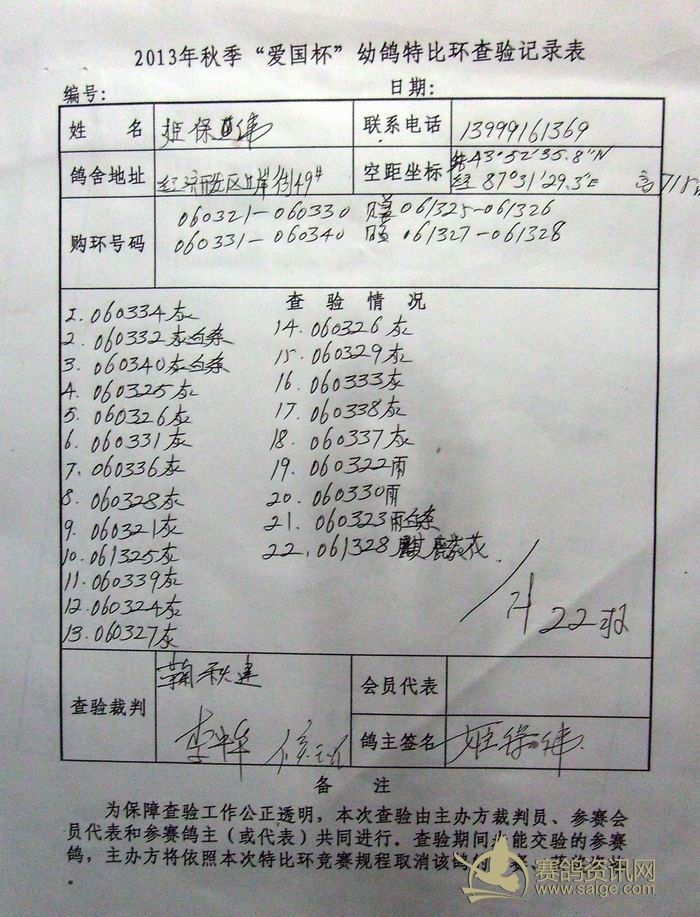 2013年秋季“爱国杯”幼鸽特比环查验记录表
编号: 日期:
姓 名 姬保 伟 联系电话 13999161369
鸽舍地址 经济开发区 岸街49# 空距坐标 纬43°52′35.8″N
经 87°31′29.3″E 高718
购环号码 060321-060330 赠061325-061326
060331-060340 赠 061327-061328
查 验 情 况
1. 060334灰
2. 060332灰白条
3. 060340灰白条
4. 060325灰
5. 060326灰
6. 060331灰
7. 060336灰
8. 060328灰
9. 060321灰
10. 061325灰
11. 060339灰
12. 060324灰
13. 060327灰
14. 060326灰
15. 060329灰
16. 060333灰
17. 060338灰
18. 060337灰
19. 060322雨
20. 060330雨
21. 060323雨白条
22. 061328麒麟花
22羽
查验裁判 鞠秋建 会员代表
李华 鸽主签名 姬保伟
备 注
为保障查验工作公正透明,本次查验由主办方裁判员、参赛会
员代表和参赛鸽主(或代表)共同进行。查验期间未能交验的参赛
鸽,主办方将依照本次特比环竞赛规程取消该鸽
赛鸽资讯网
www.saige.com